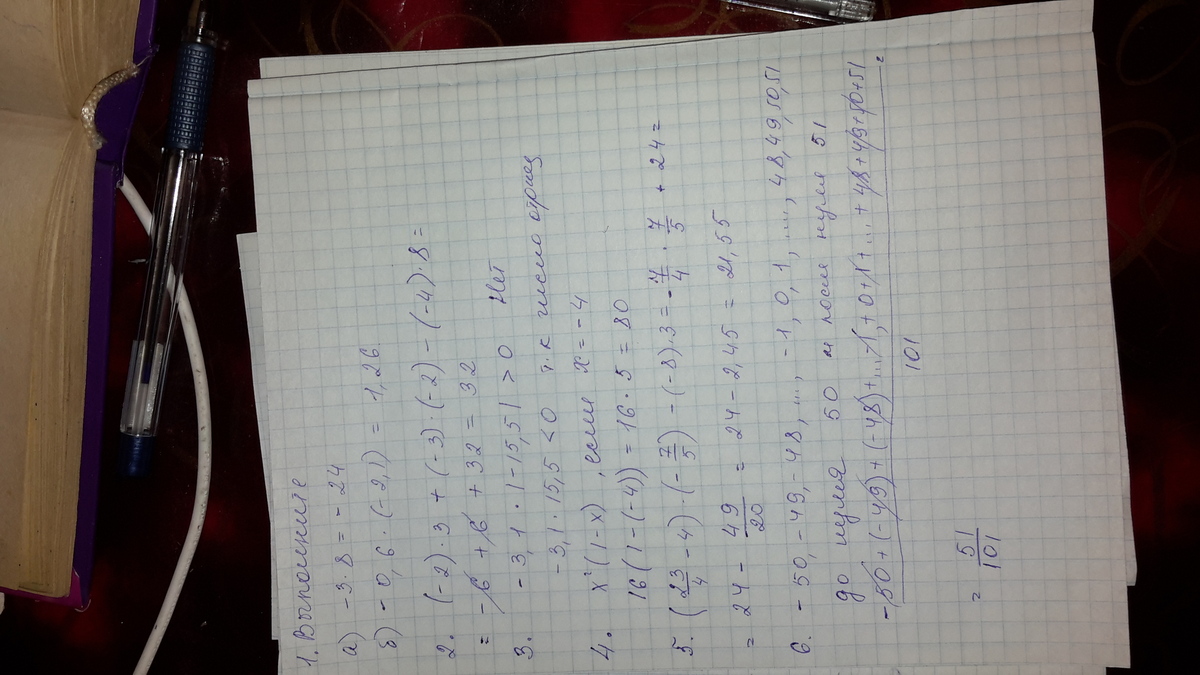 1. Выполните
а) -3·8 = -24
б) -0,6·(-2,1) = 1,26
2. (-2)·3 + (-3)·(-2) - (-4)·8 =
= -6 + 6 + 32 = 32
3. -3,1 · |-15,5| > 0 Нет
-3,1·15,5 < 0 т.к число отриц
4. x²(1-x), если x = -4
16(1-(-4)) = 16·5 = 80
5. (23/4 - 4)·(-7/5) - (-8)·3 = -7/4 · 7/5 + 24 =
= 24 - 49/20 = 24 - 2,45 = 21,55
6. -50, -49, -48, ..., -1, 0, 1, ..., 48, 49, 50, 51
до нуля 50 и после нуля 51
-50+(-49)+(-48)+...-1+0+1+...+48+49+50+51 =
101
= 51/101